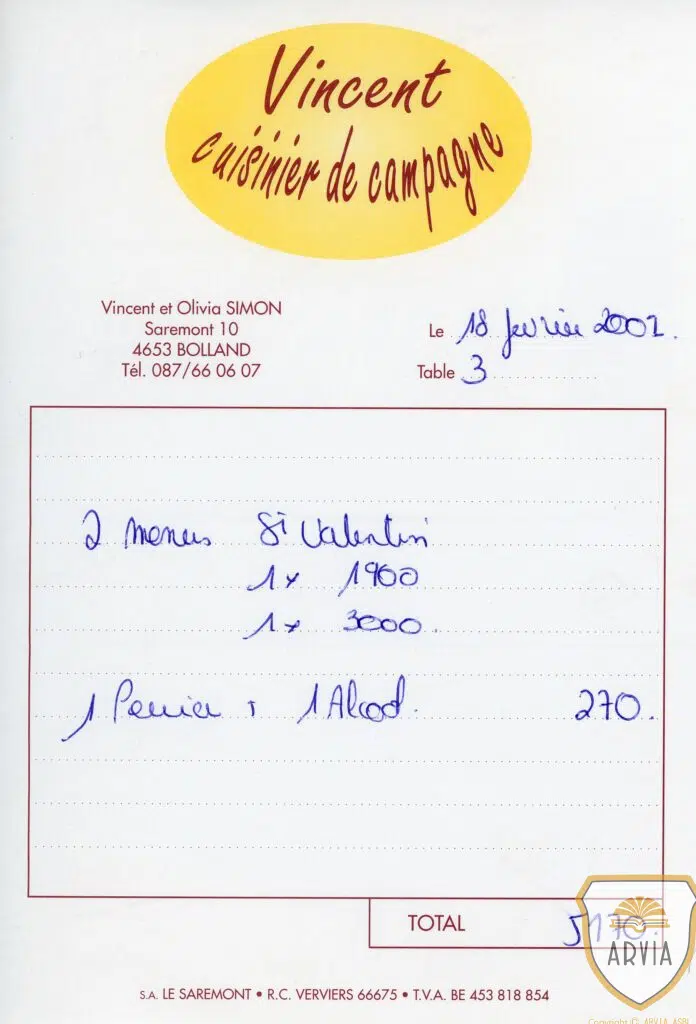 Vincent
cuisinier de campagne
Vincent et Olivia SIMON
Saremont 10
4653 BOLLAND
Tél. 087/66 06 07
Le 18 février 2002.
Table 3
2 menus St Valentin
1x 1900
1x 3000.
1 Perrier + 1 Alcool. 270.
TOTAL 5170.
ARVIA
S.A. LE SAREMONT • R.C. VERVIERS 66675 • T.V.A. BE 453 818 854
Copyright © ARVIA ASBL